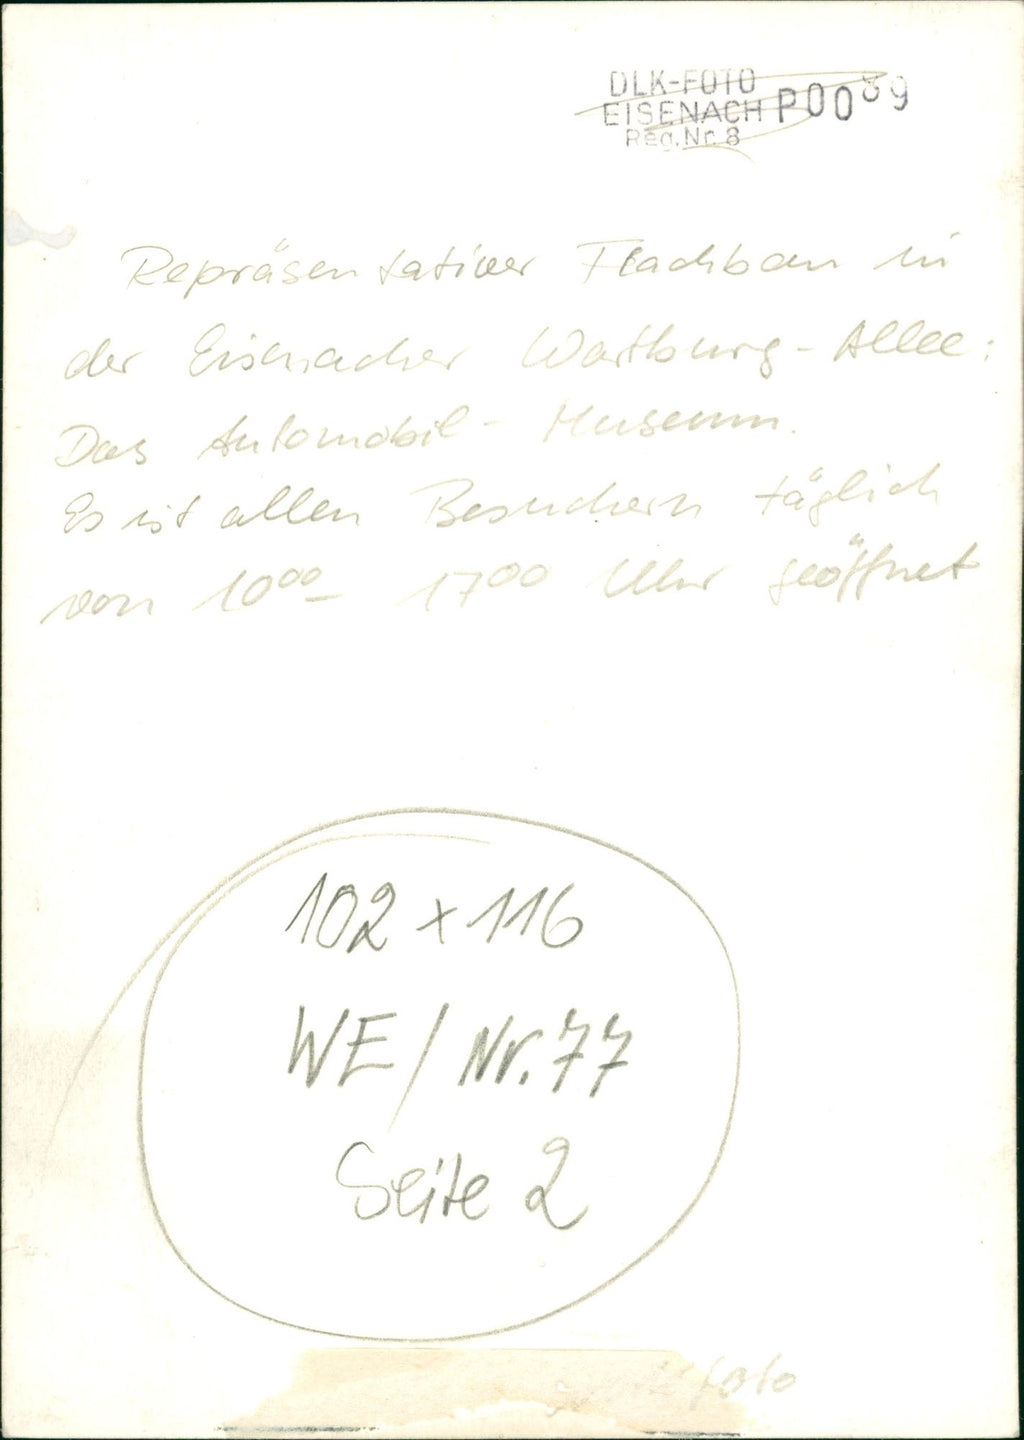 DLK-FOTO
EISENACH P0089
Reg.Nr. 8
Repräsentativer Flachbau in
der Eisenacher Wartburg-Allee:
Das Automobil-Museum.
Es ist allen Besuchern täglich
von 10⁰⁰ - 17⁰⁰ Uhr geöffnet
102 x 116
WE / Nr. 77
Seite 2
foto